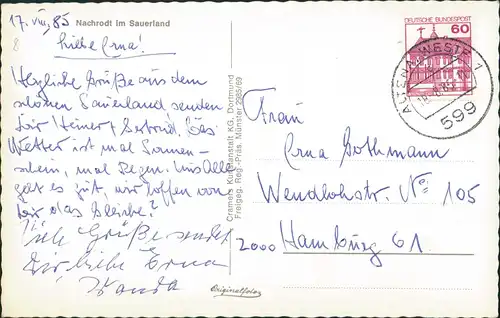 17. VIII, 85 Nachrodt im Sauerland
Liebe Erna!
Herzliche Grüße aus dem
schönen Sauerland senden
Dir Heiner & Gertrud. Das
Wetter ist mal Sonnen-
schein, mal Regen. Uns Allen
geht es gut, wir hoffen von
Dir das Gleiche?
Viele Grüße sendet
Dir liebe Erna
Wanda
Cramers Kunstanstalt KG, Dortmund
Freigeg. Reg.-Präs. Münster 2985/69
Originalfoto
DEUTSCHE BUNDESPOST
60
ALTENA, WESTF 1
599
Frau
Erna Gothmann
Wendlohstr. No 105
2000 Hamburg 61